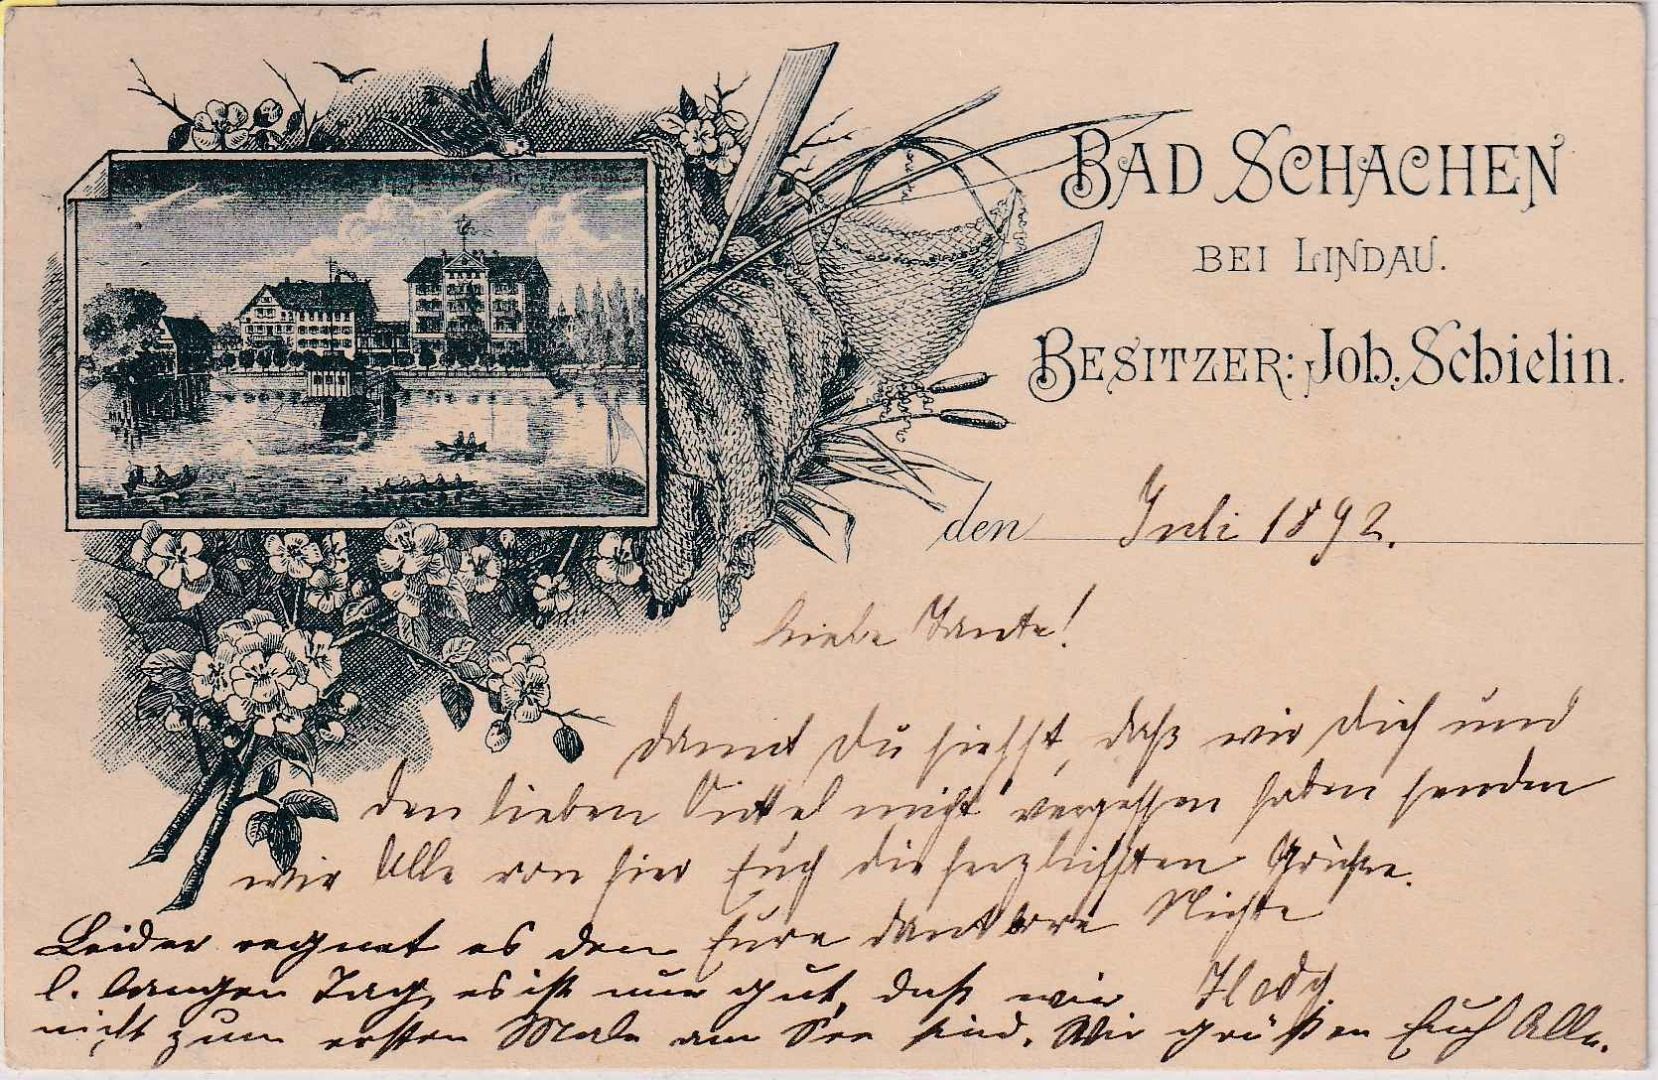 BAD SCHACHEN
BEI LINDAU.
BESITZER: Joh. Schielin.
den Juli 1892.
Liebe Tante!
damit Du siehst, daß wir Dich und
den lieben Onkel nicht vergessen haben senden
wir Alle von hier Euch die herzlichsten Grüße.
Eure dankbare Nichte
Hedy.
Leider regnet es den
l. langen Tag, es ist nur gut, daß wir
nicht zum ersten Male am See sind. Wir grüßen Euch Alle.